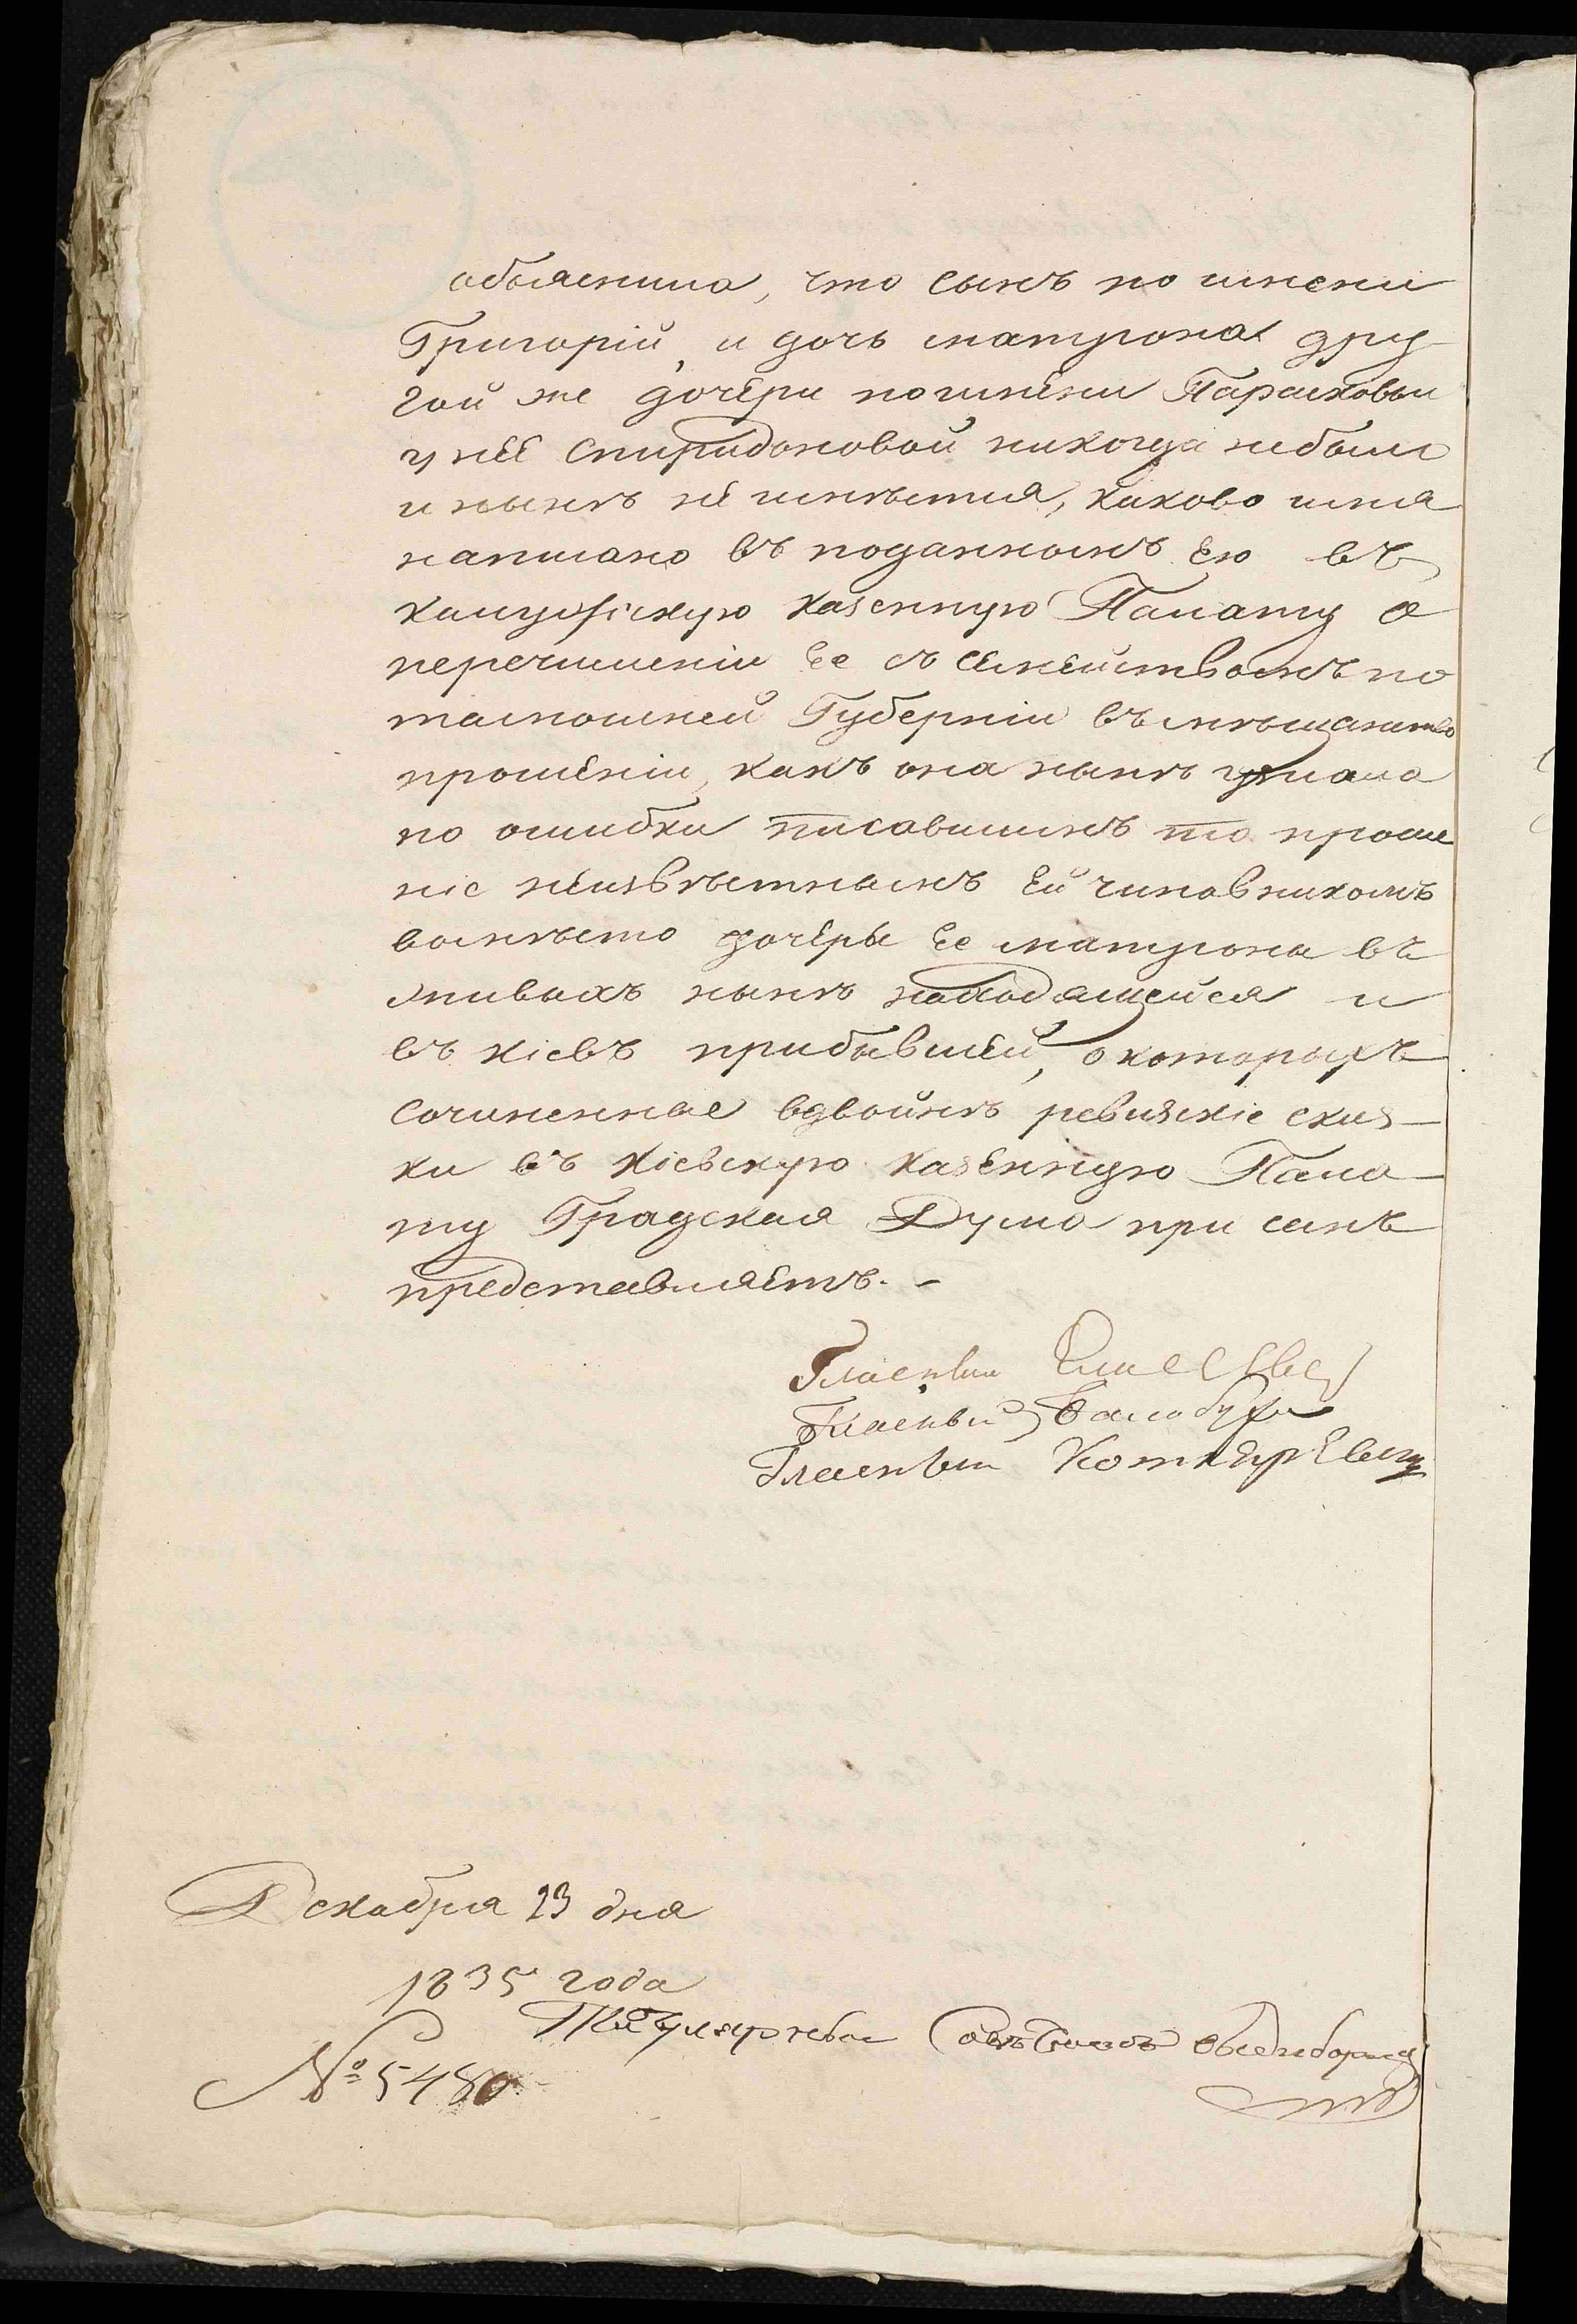 объяснила, что сынъ по имени
Григорій, и дочь матрона дру
гой же дочери по имени Парасковіи
у неё Спиридоновой никогда не было
и нынѣ не имѣется, каково имя
написано въ поданномъ ею въ
калужскую казенную Палату о
перечисленіи ее съ семействомъ по
тамошней Губерніи въ мѣщанство
прошеніи, какъ она нынѣ узнала
по ошибки писавшимъ то проше
ніе неизвѣстнымъ ей чиновникомъ
вомѣсто дочеры ее матроны въ
живыхъ нынѣ находящейся и
въ кіевъ прибывшей, о которыхъ
сочиненные вдвойнѣ ревизкіе сказ-
ки въ Кіевскую казенную Пала-
ту Градская Дума при семъ
представляетъ. -
Гласный Елисеевъ
Гласный Балабуха
Гласный Котляревскій
Декабря 23 дня
1835 года
Титулярный Совѣтникъ
№ 5480